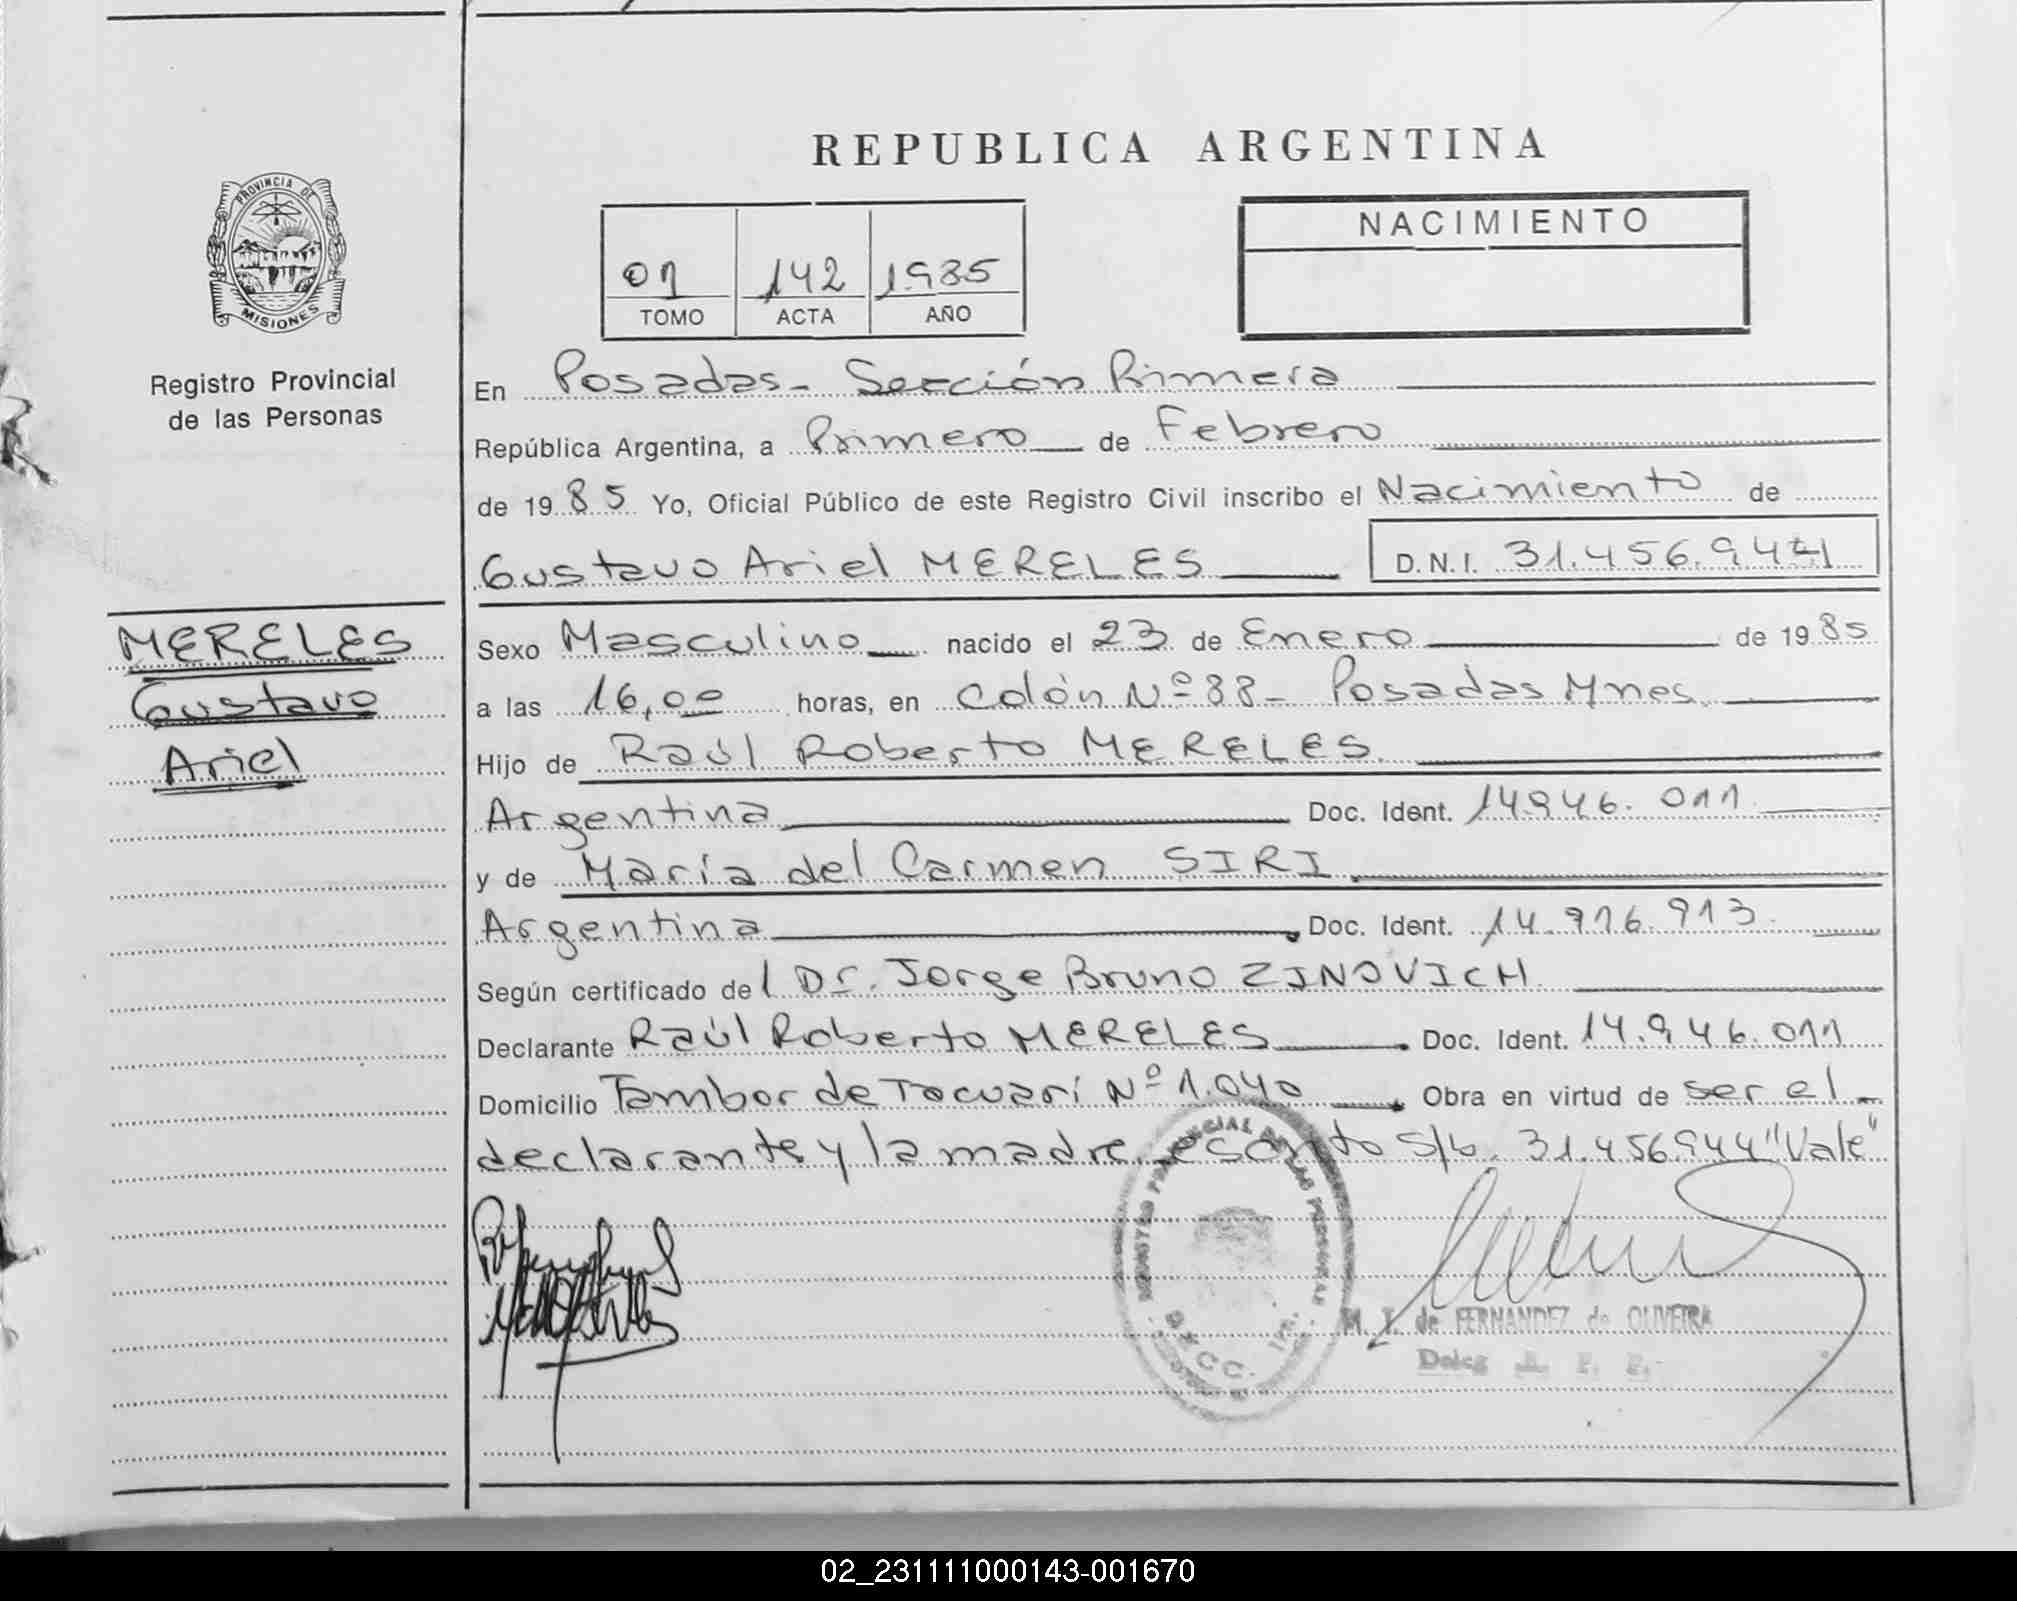 REPUBLICA ARGENTINA
PROVINCIA DE
MISIONES
Registro Provincial
de las Personas
01 142 1985
TOMO ACTA AÑO
NACIMIENTO
En Posadas - Sección Primera
República Argentina, a Primero de Febrero
de 1985 Yo, Oficial Público de este Registro Civil inscribo el Nacimiento de
Gustavo Ariel MERELES D.N.I. 31.456.944
MERELES
Gustavo
Ariel
Sexo Masculino nacido el 23 de Enero de 1985
a las 16,00 horas, en Colón Nº 88 - Posadas Mnes.
Hijo de Raúl Roberto MERELES.
Argentina Doc. Ident. 14.946.011
y de María del Carmen SIRI.
Argentina Doc. Ident. 14.976.913.
Según certificado del Dr. Jorge Bruno ZINOVICH.
Declarante Raúl Roberto MERELES Doc. Ident. 14.946.011
Domicilio Tambor de Tacuarí Nº 1.040 Obra en virtud de ser el
declarante y la madre. escrito s/b. 31.456.944 "Vale"
M. T. de FERNANDEZ de OLIVEIRA
Deleg. R. P. P.
02_231111000143-001670